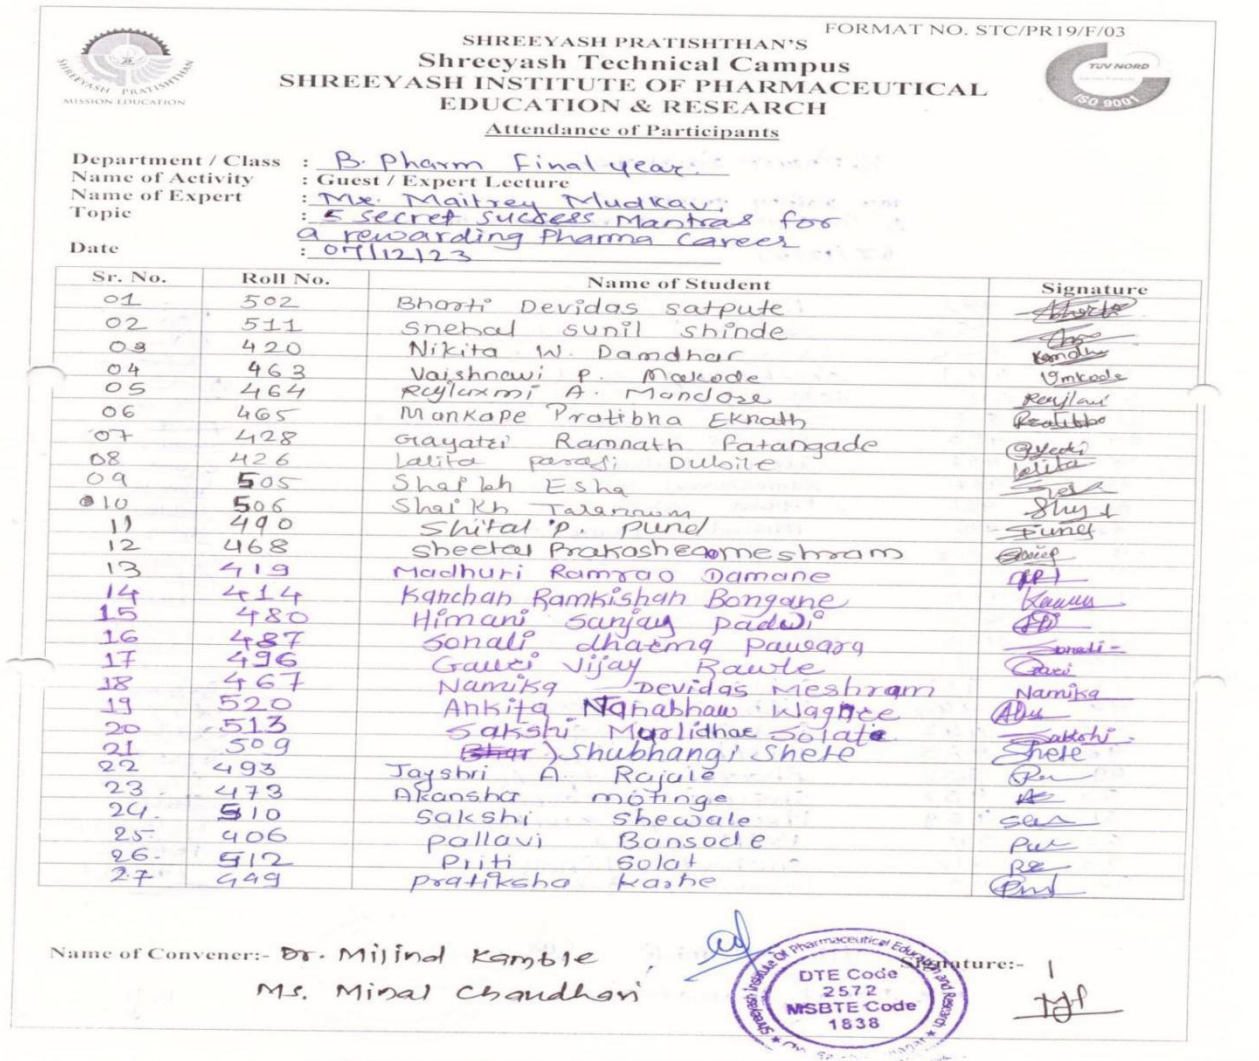 FORMAT NO. STC/PR19/F/03
SHREEYASH PRATISHTHAN'S
Shreeyash Technical Campus
SHREEYASH INSTITUTE OF PHARMACEUTICAL
EDUCATION & RESEARCH
SHREEYASH PRATISHTHAN
MISSION EDUCATION
TÜV NORD
ISO 9001
Attendance of Participants
Department / Class : B. Pharm Final year.
Name of Activity : Guest / Expert Lecture
Name of Expert : Mr. Maitrey Mudkavi
Topic : 5 secret success Mantras for
a rewarding Pharma Career
Date : 07/12/23
Sr. No. Roll No. Name of Student Signature
01 502 Bharti Devidas Satpute
02 511 Snehal Sunil Shinde
03 420 Nikita W. Damdhar
04 463 Vaishnavi P. Makode Vmkode
05 464 Rajlaxmi A. Mandore
06 465 Mankape Pratibha Eknath
07 428 Gayatri Ramnath Fatangade
08 426 Lalita Parasji Dubile Lalita
09 505 Shaikh Esha
10 506 Shaikh Tarannum
11 490 Shital P. Pund Pund
12 468 Sheetal Prakash meshram
13 419 Madhuri Ramrao Damane
14 414 Kanchan Ramkishan Bongane
15 480 Himani Sanjay Padvi
16 487 Sonali dharma Pawara Sonali
17 496 Gauri Vijay Rawte Gauri
18 467 Namika Devidas Meshram Namika
19 520 Ankita Nanabhau Waghree
20 513 Sakshi Murlidhar Solate Sakshi
21 509 Shubhangi Shete Shete
22 493 Jayshri A. Rajale
23 473 Akansha motinge
24. 510 Sakshi Shewale
25. 406 Pallavi Bansode
26. 512 Priti Solat
27 449 Pratiksha Karhe
Name of Convener:- Dr. Milind Kamble Signature:-
Ms. Minal Chaudhari
Shreeyash Institute Of Pharmaceutical Education and Research
DTE Code
2572
MSBTE Code
1838